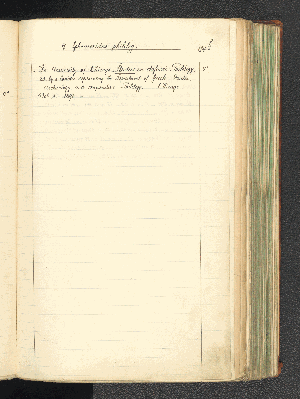 Ephemerides philolog.
The University of Chicago. Studies in classical Philology,
ed. by a Committee representing the departments of Greek, Latin,
Archaeology and comparative Philology. Chicago
Vol. 1. 1895